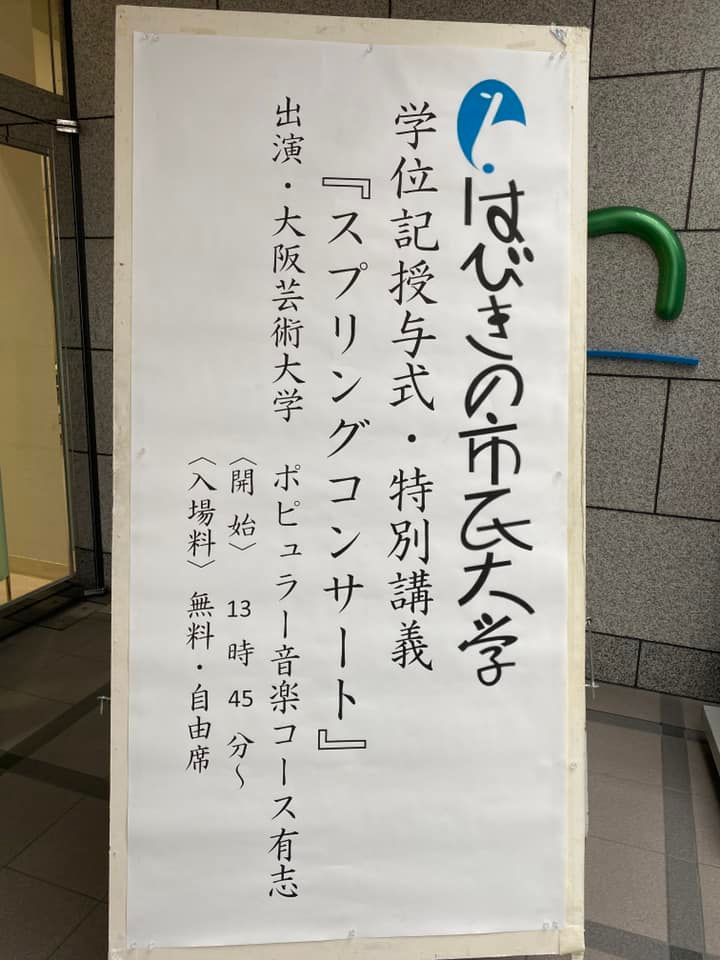 はびきの市民大学
学位記授与式・特別講義
『スプリングコンサート』
出演・大阪芸術大学 ポピュラー音楽コース有志
〈開始〉 13時45分～
〈入場料〉無料・自由席